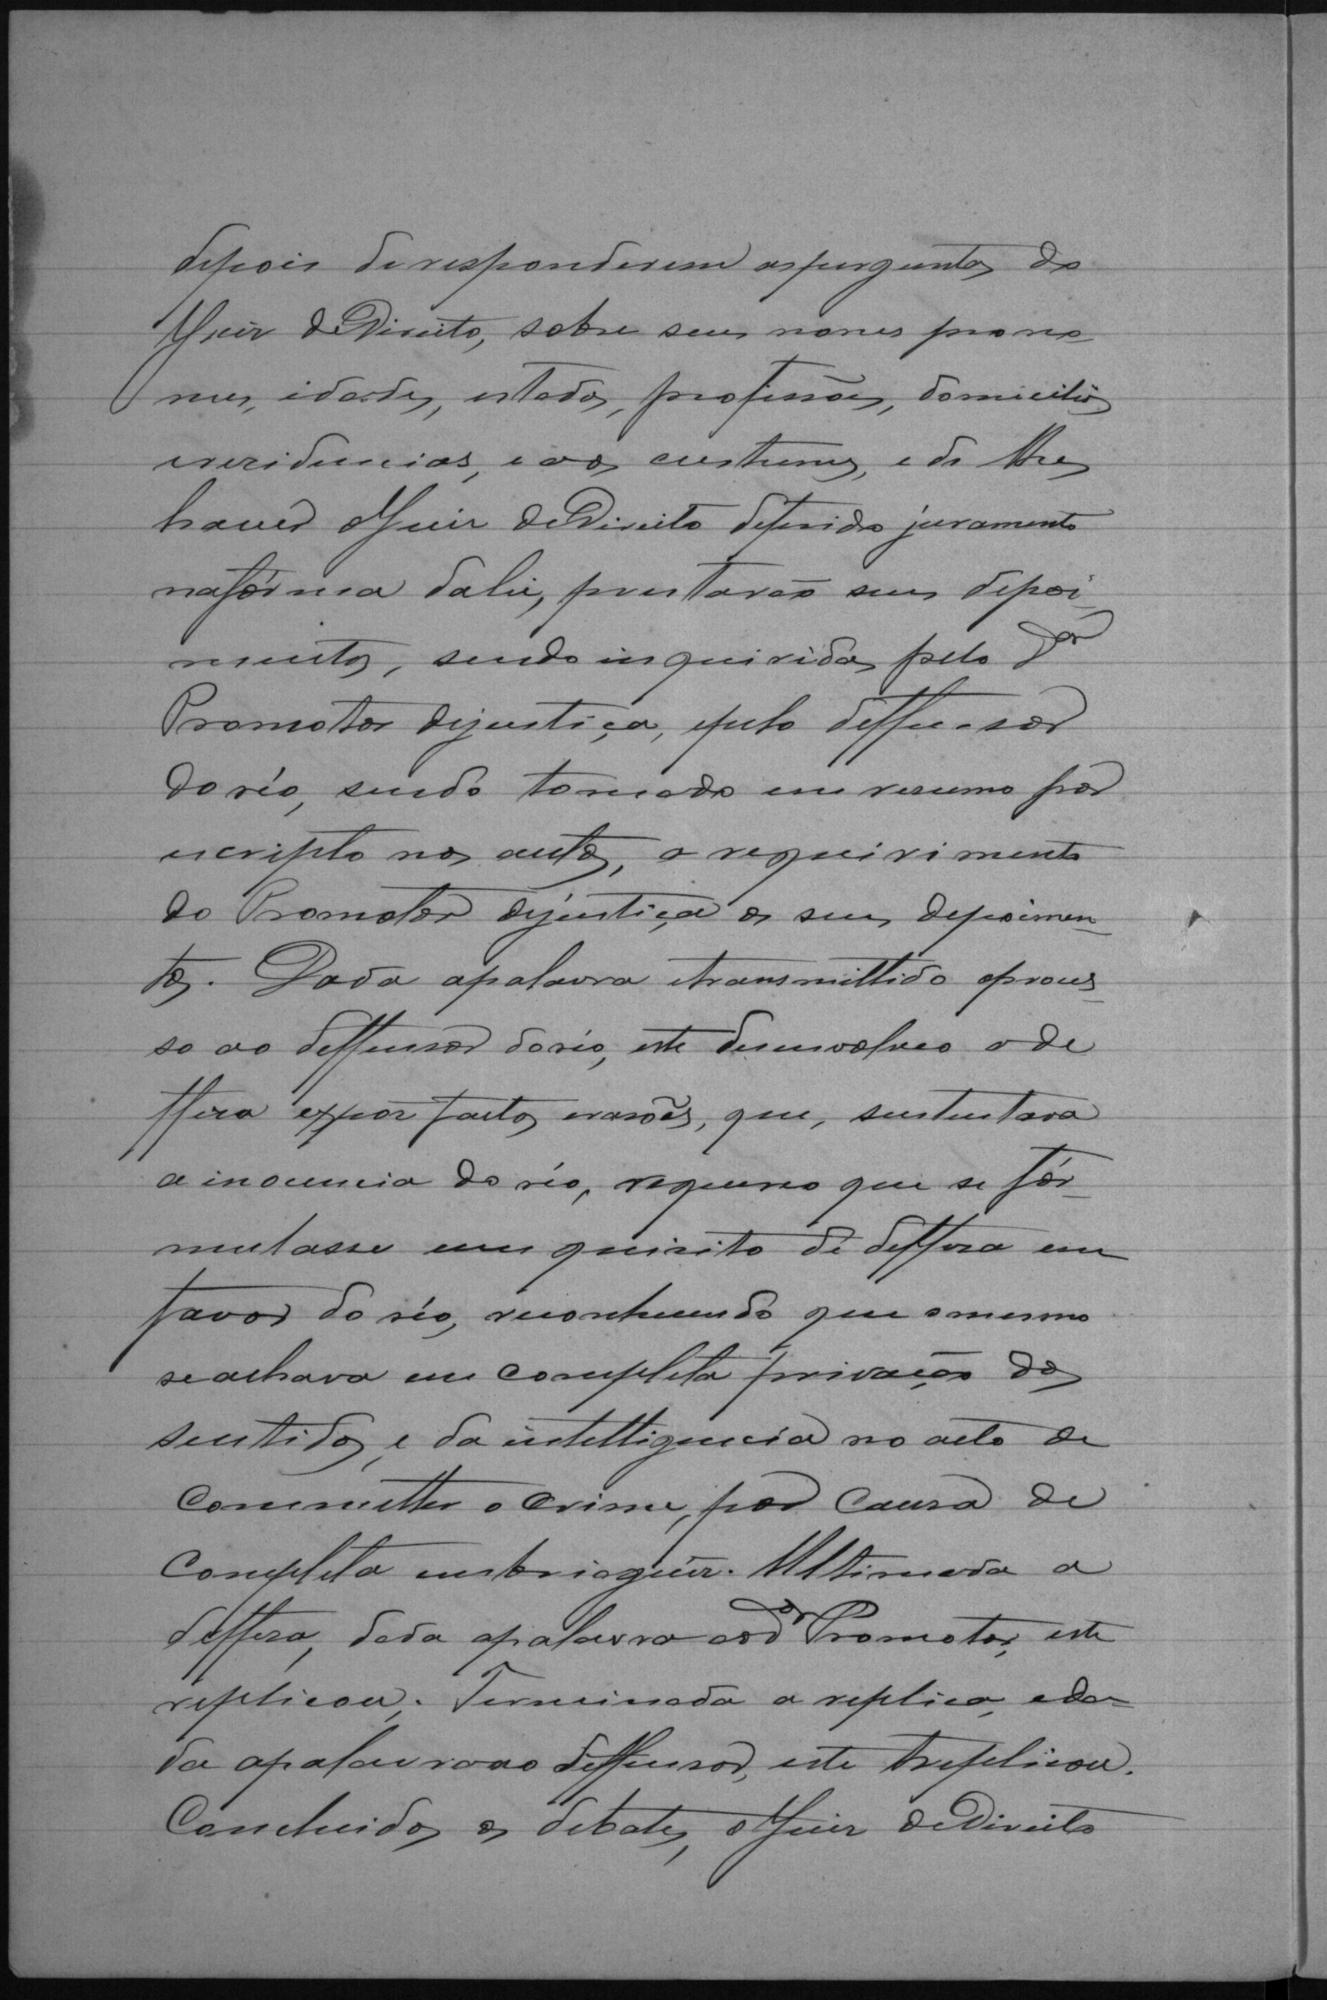 depois de responderem as perguntas do
Juiz de Direito, sobre seus nomes prono
mes, idades, estados, profissões, domicilios
e residencias, e aos custumes, e de lhes
haver o Juiz de Direito deferido juramento
na fórma da lei, prestarão seus depoi-
mentos, sendo inquiridas pelo Dor
Promotor de justiça, e pelo deffensor
do réo, sendo tomado em resumo por
escripto nos autos, a requirimento
do Promotor de justiça os seus depoimen-
tos. Dada a palavra e transmittido o proces-
so ao deffensor do réo, este desenvolveo a de
ffeza expoz factos e rasões, que, sustentava
a inocencia do réo, requereo que se fór-
mulasse um quisito de deffeza em
favor do réo, reconhecendo que o mesmo
se achava em completa privação dos
sentidos, e da intelligencia no acto de
commetter o crime, por causa de
completa embriaguez. Ultimada a
deffeza, dada a palavra ao Dor Promotor, este
replicou. Terminada a replica, e da-
da a palavra ao deffensor, este treplicou.
Concluidos os debates, o Juiz de Direito